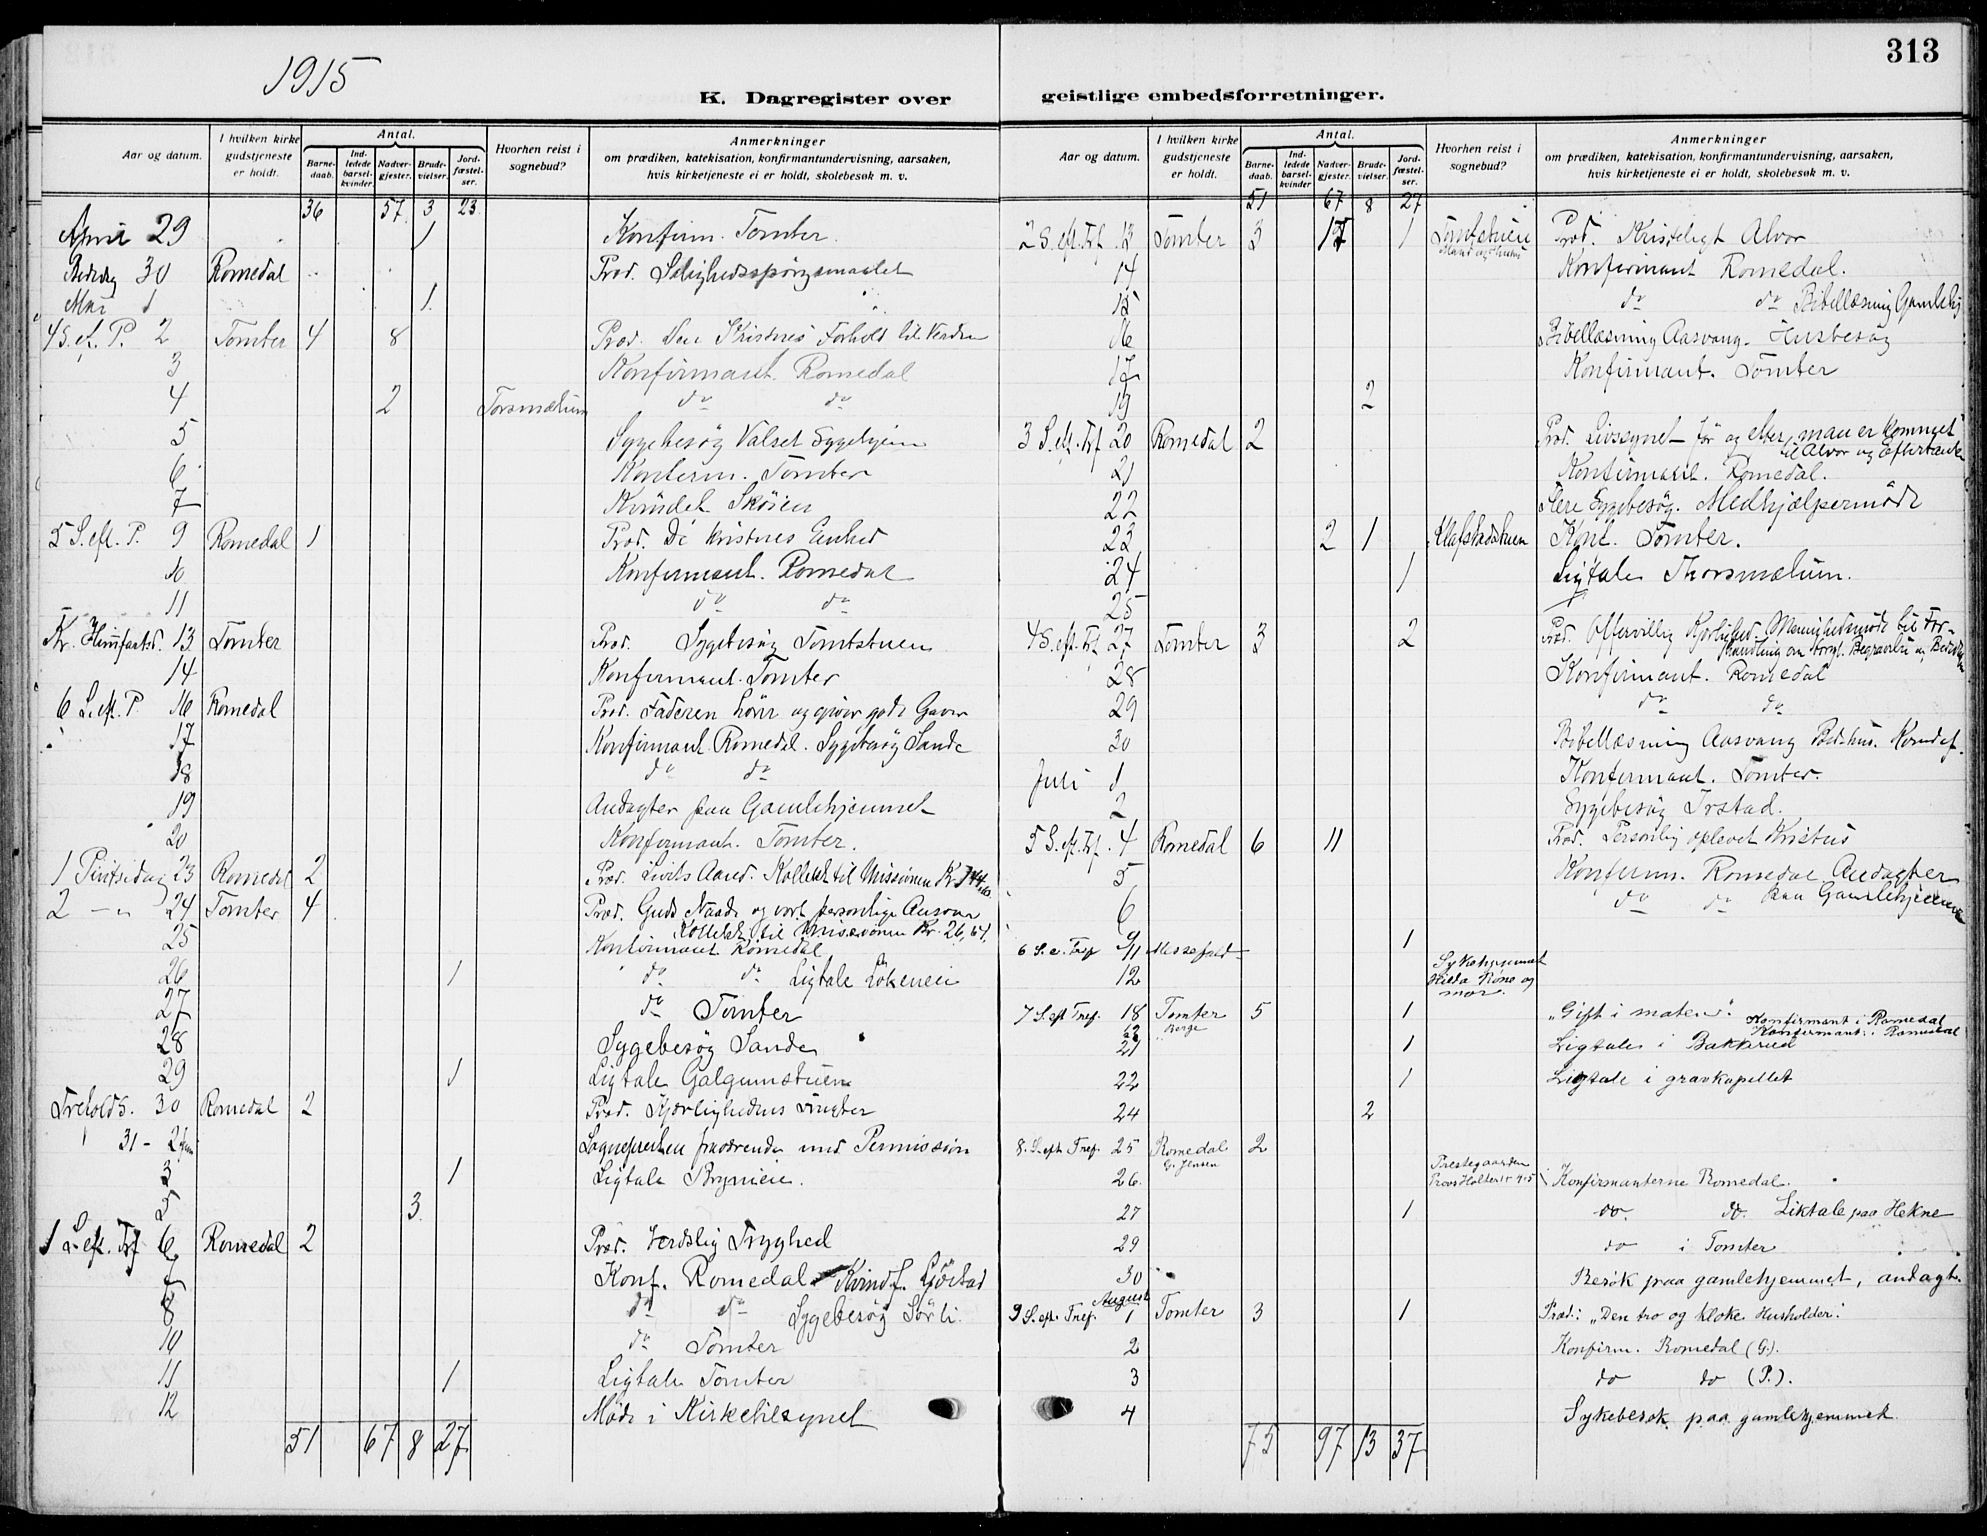 313
1915
K. Dagregister over
geistlige embedsforretninger.
Aar og datum.
I hvilken kirke gudstjeneste er holdt.
Antal.
Barne-daab.
Ind-ledede barsel-kvinder.
Nadver-gjester.
Brude-vielser.
Jord-fæstel-ser.
Hvorhen reist i sognebud?
Anmerkninger
om prædiken, katekisation, konfirmantundervisning, aarsaken,
hvis kirketjeneste ei er holdt, skolebesøk m. v.
36 57 3 23
April 29 1 Konfirm. Tomter.
Bededag 30 Romedal Præd. Salighedsspørgsmaalet
Mai 1 1
4 S. ef. P. 2 Tomter 4 8 Præd. Den Kristnes Forhold til Verden
3 Konfirmant. Romedal
4 2 Torsmælum do do
5 Sygebesøg Valset Sygehjem
6 Konferm. Tomter
7 Kvindef. Skøien
5 S. eft. P. 9 Romedal 1 Præd. De kristnes Enhed
10 Konfirmant. Romedal
11 do do
Kr. Himfartsd. 13 Tomter Præd. Sygebesøg Tomtstuen
14 Konfirmant. Tomter
6 S. eft. P. 16 Romedal Præd. Faderen hører og giver gode Gaver
17 Konfirmant. Romedal. Sygebesøg Sande
18 do do
19 Andagter paa Gamlehjemmet
20 Konfirmant. Tomter.
1 Pintsedag 23 Romedal 2 Præd. Livets Aand. Kollekt til Missionen Kr.
2 — " 24 Tomter 4 Præd. Guds Naade og vort personlige Ansvar
Kollekt til Missionen Kr. 26,64.
25 Konfirmant Romedal
26 1 do do Ligtale Løkeneie
27 do Tomter
28 Sygebesøg Sande
29 1 Ligtale Galgumstuen
Trefolds. 30 Romedal 2 Præd. Kjærlighedens Frugter
31 - 2 Juni Sognepresten fraværende med Permission
3 1 Ligtale Brynieie.
5 3
1 S. eft. Trf 6 Romedal 2 Præd. Verdslig Tryghed
7 Konf. Romedal. Kvindf. Gjøstad
8 do do Sygebesøg Sørli.
10 do Tomter
11 1 Ligtale Tomter
12 Møde i Kirketilsynet
51 67 8 27
Aar og datum.
I hvilken kirke gudstjeneste er holdt.
Antal.
Barne-daab.
Ind-ledede barsel-kvinder
Nadver-gjester.
Brude-vielser.
Jord-fæstel-ser.
Hvorhen reist i sognebud?
Anmerkninger
om prædiken, katekisation, konfirmantundervisning, aarsaken,
hvis kirketjeneste ei er holdt, skolebesøk m. v.
51 67 8 27
2 S. eft. Trf. 13 Tomter 3 17 1 Præd. Kristeligt Alvor
14 Konfirmant Romedal.
15 do do Bibellæsning Gamlehj
16 Bibellæsning Aasvang. Husbesøg
17 Konfirmant. Tomter
19 2
3 S. eft. Trf 20 Romedal 2 Præd. Livssynet før og efter, man er kommet
til Alvor og Eftertanke
21 Konfirmant. Romedal.
22 Flere Sygebesøg. Medhjælpermøde
23 2 1 Klafstadstuen Konf. Tomter.
24 1 Ligtale Thorsmælum.
25
4 S. eft. Trf. 27 Tomter 3 2 Præd. Offervillig Kjærlighed. Menighedsmøde til For-
handling om borgl. Begravelse og
28 Konfirmant. Romedal
29 do do
30 Bibellæsning Aasvang Bedehus. Kvindef.
Juli 1 Konfirmant. Tomter.
2 Sygebesøg Irstad.
5 S. eft. Trf. 4 Romedal 6 11 Præd. Personlig oplevet Kristus
5 Konfirm. Romedal Andagter
6 do do paa Gamlehjemmet
9 1
6 S. e. Tref 11 Messefald
12 Sykehjemmet
Hilda Røne og
mor.
7 S. eft Tref. 18 Tomter 5 1 „Gift i maten".
Berge Konfirmant i Romedal
Konfirmant i Romedal
21 1 Ligtale i Bakkerud
22 1 Ligtale i gravkapellet
24 2
8. S. eft Tref. 25 Romedal 2
G. Jensen
26. Prestegaarden
Konfirmanterne Romedal.
27 1 do. do. Liktale paa Hekne
29 do i Tomter
30 Besøk paa gamlehjemmet, andagt.
August
9 S. eft. Tref. 1 Tomter 3 1 Præd: „Den tro og kloke Husholder".
2 Konfirm. Romedal (G.).
3 do do (P.).
4 Sykebesøk paa gamlehjemmet.
75 97 13 37